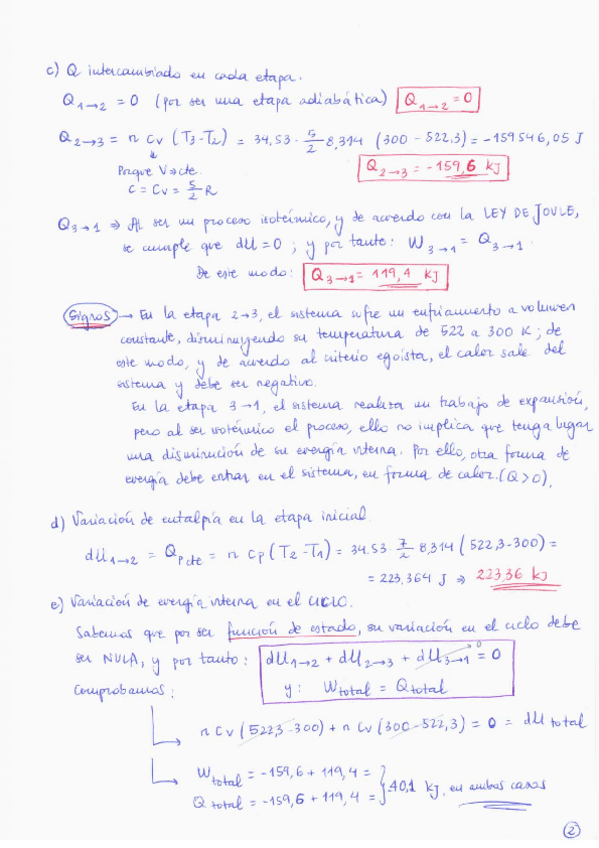 c) Q intercambiado en cada etapa.
Q1→2 = 0 (por ser una etapa adiabática) Q1→2 = 0
Q2→3 = n Cv (T3-T2) = 34,53 · 5/2 8,314 (300 - 522,3) = -159546,05 J
Porque V=cte.
C = Cv = 5/2 R
Q2→3 = -159,6 kJ
Q3→1 ⇒ Al ser un proceso isotérmico, y de acuerdo con la LEY DE JOULE,
se cumple que dU = 0 ; y por tanto: W3→1 = Q3→1.
De este modo: Q3→1 = 119,4 kJ
Signos → En la etapa 2→3, el sistema sufre un enfriamiento a volumen
constante, disminuyendo su temperatura de 522 a 300 K; de
este modo, y de acuerdo al criterio egoísta, el calor sale del
sistema y debe ser negativo.
En la etapa 3→1, el sistema realiza un trabajo de expansión,
pero al ser isotérmico el proceso, ello no implica que tenga lugar
una disminución de su energía interna. Por ello, otra forma de
energía debe entrar en el sistema, en forma de calor. (Q>0).
d) Variación de entalpía en la etapa inicial.
dU1→2 = QPcte = n Cp (T2-T1) = 34.53 · 7/2 8,314 (522,3-300) =
= 223,364 J ⇒ 223,36 kJ
e) Variación de energía interna en el CICLO.
Sabemos que por ser función de estado, su variación en el ciclo debe
ser NULA, y por tanto: dU1→2 + dU2→3 + dU3→1 = 0
0
y: Wtotal = Qtotal
Comprobamos:
n Cv (522,3-300) + n Cv (300-522,3) = 0 = dU total
Wtotal = -159,6 + 119,4 =
Qtotal = -159,6 + 119,4 = } -40,1 kJ, en ambos casos
2